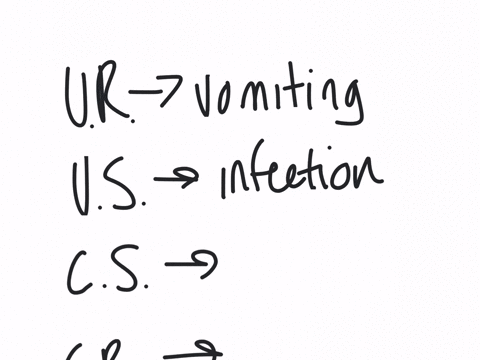 U.R. → vomiting
U.S. → infection
C.S. →
C.R. →